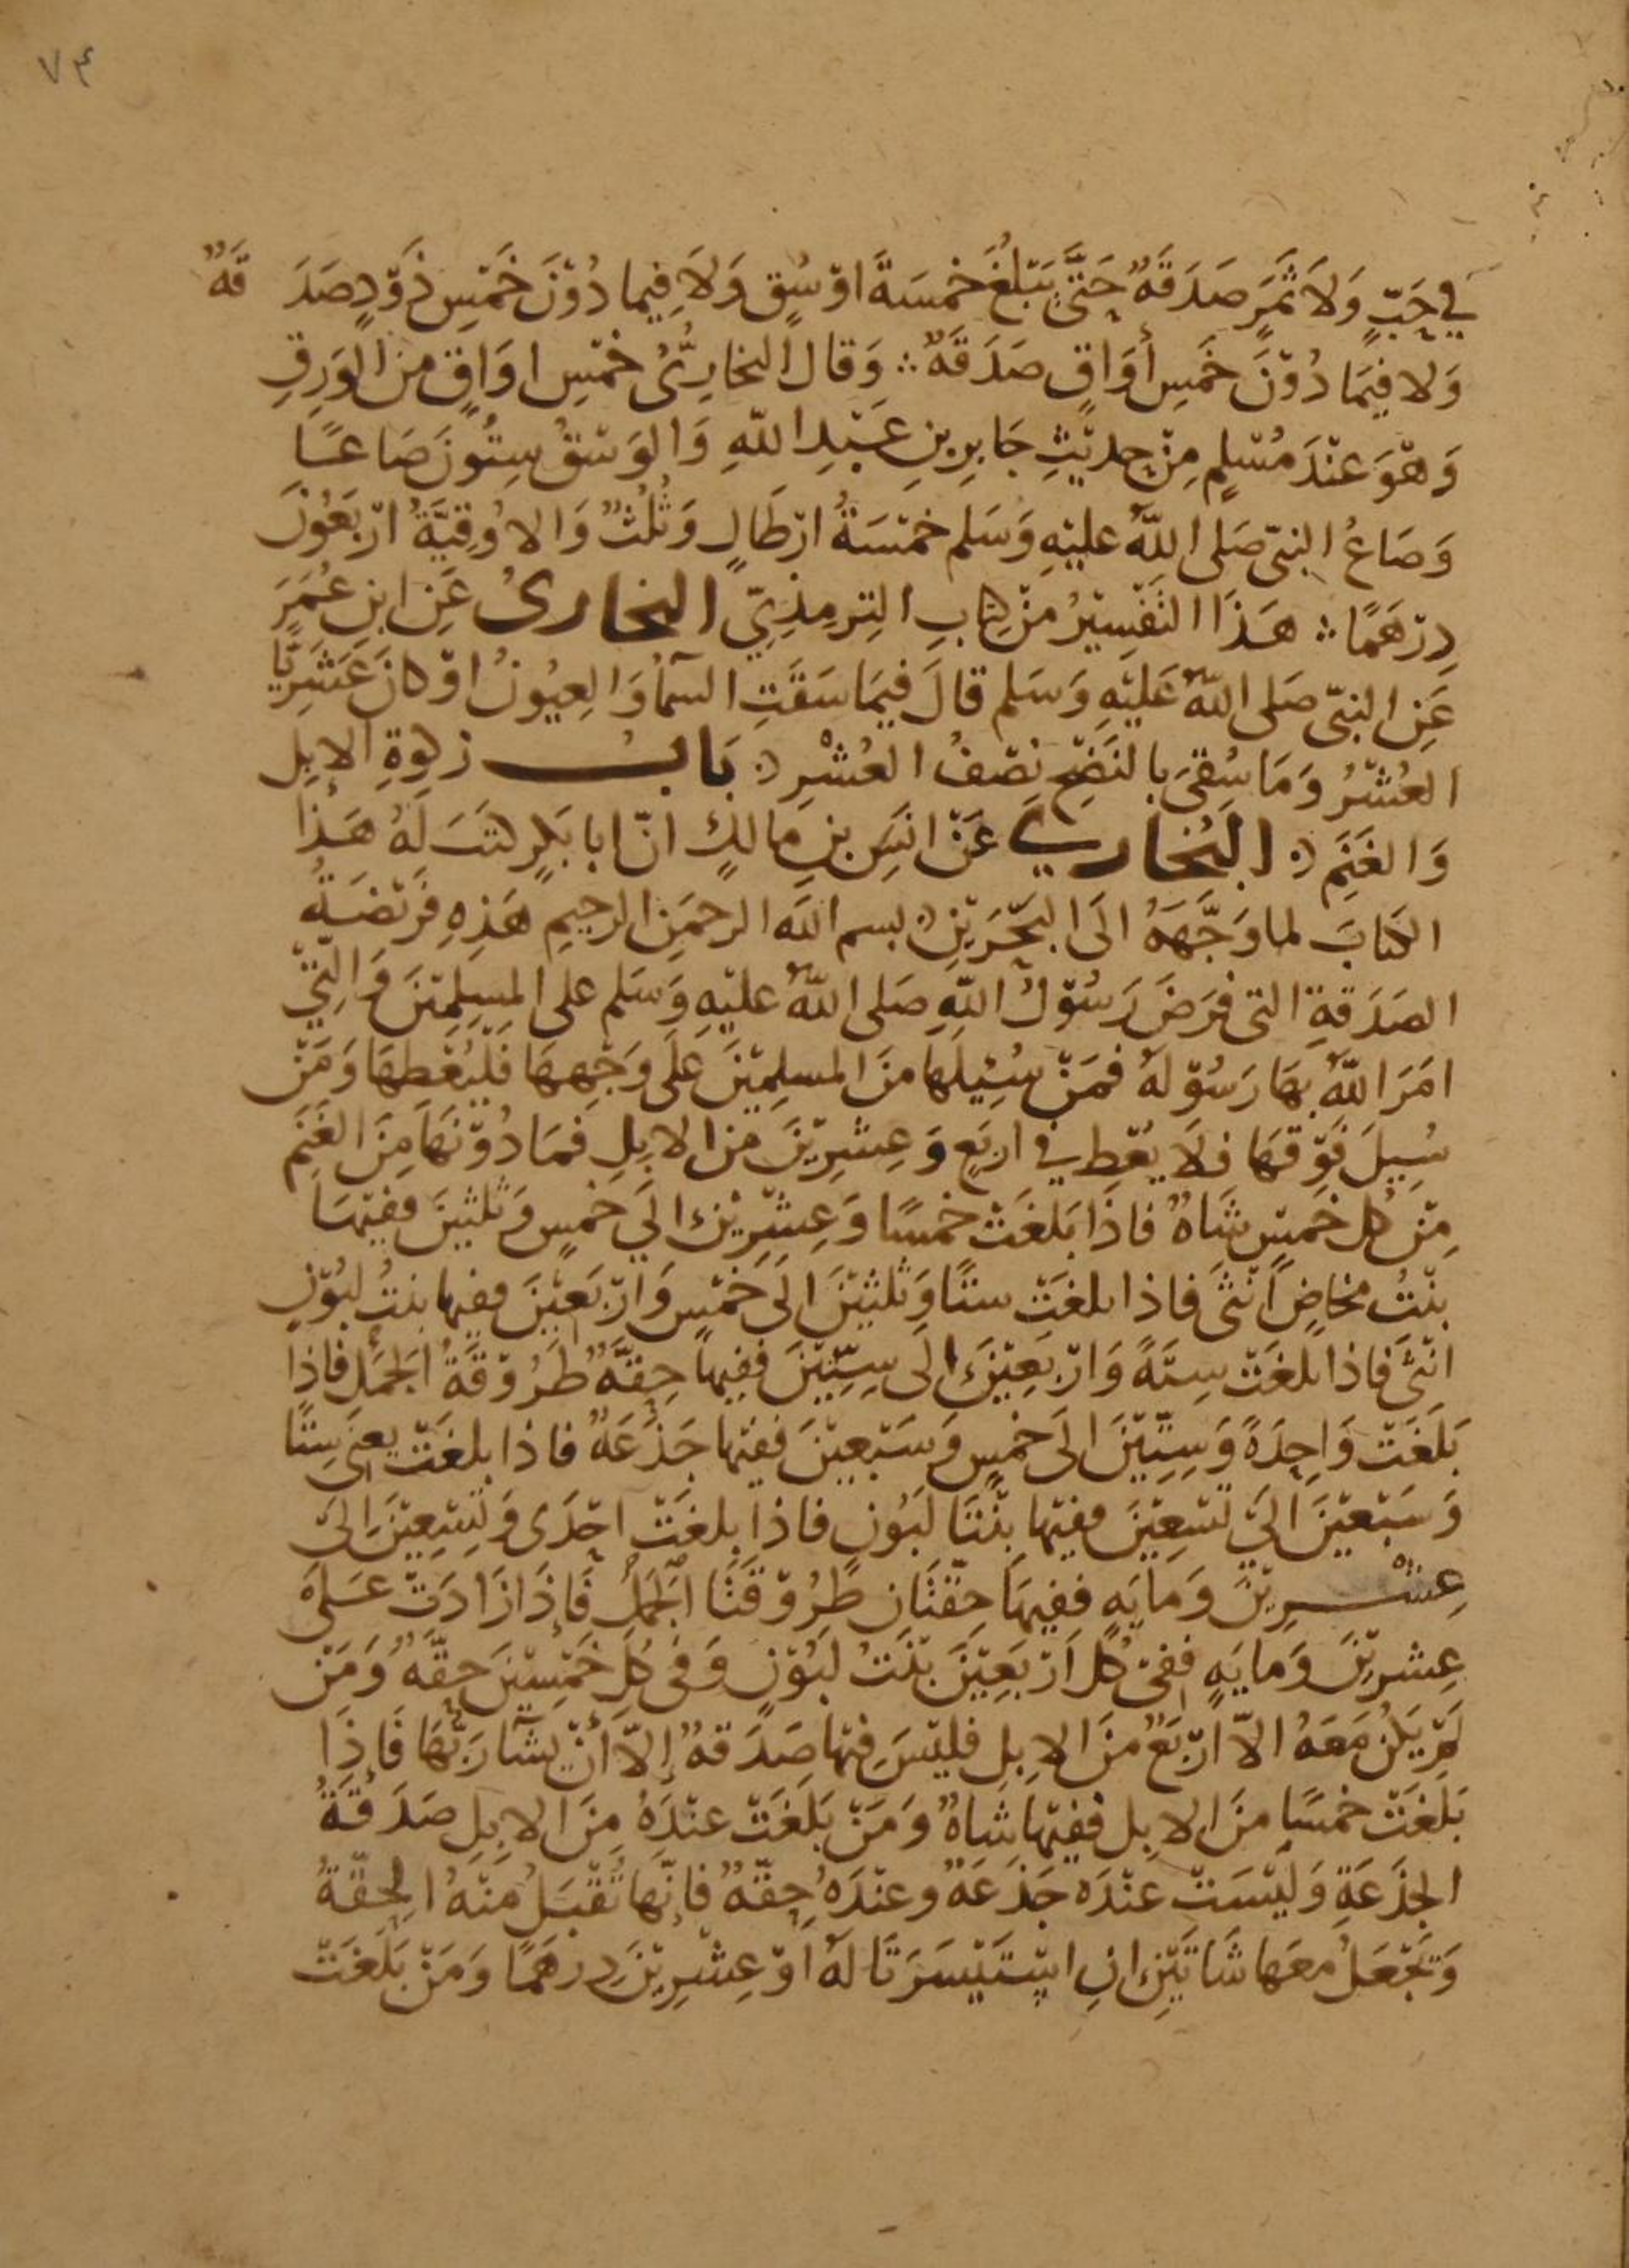 ٧٤
في حَبٍّ وَلَا ثَمَرٍ صَدَقَةٌ حَتَّى تَبْلُغَ خَمسَةَ اوْسُقٍ وَلَا فِيما دُوْنَ خَمْسِ ذَوْدٍ صَدَقَةٌ
وَلا فِيمَا دُوْنَ خَمسِ أوَاقٍ صَدَقَةٌ ؞ وَقال البخارِيُّ خمْسِ اوَاقٍ من الوَرِقِ
وَهْوَ عنْدَ مُسْلِمٍ مِنْ حديْثِ جَابِرِ بنِ عَبْدِ اللّهِ وَالوَسْقُ سِتُونَ صَاعًا
وَصَاعُ النبيّ صَلى اللّهُ عليْهِ وَسَلم خمْسَةُ ارْطَالٍ وَثُلُثٌ وَالاوُقِيَّةُ ارْبَعُونَ
دِرْهَمًا ؞ هَذَا التفْسِيْرُ منْ كِتابِ التِرمِذِيّ البخارىُ عَنِ ابنِ عُمَرَ
عَنِ النبيّ صَلى اللّهُ عَليْهِ وَسَلم قالَ فيمَا سَقَتِ السّمآُ وَالعِيُونُ اوْ كانَ عَثَريًّا
العُشْرُ وَمَا سُقيَ بالنَضْحِ نصْفُ العُشْرِ ؞ بَابُ زكوةِ الابِلِ
وَالغَنَمِ ؞ البُخاري عَنْ انَسِ بنِ مَالكٍ انّ ابا بَكرٍ كتَبَ لَهُ هَذا
الكتابَ لما وَجَّهَهُ الَى البَحْرَيْنِ ؞ بسم اللّه الرحمَنِ الرحِيمِ هَذِهِ فَريْضَةُ
الصَدَقةِ التى فَرَضَ رَسُوْلُ اللّهِ صَلى اللّهُ عليْهِ وَسَلم على المسِلِميْنَ وَالَّتِيْ
امَرَ اللّهُ بهَا رَسُوْلهُ فمَنْ سُئِيلهَا منَ المسلِمِيْنَ عَلَى وَجْهِهَا فَلْيُعْطِهَا وَمَنْ
سُيِلَ فَوْقهَا فلَا يُعْطِ في اربَعٍ وَعِشْرِيْنَ من الابِلِ فَمَا دُوْنهَا مِنَ الغَنَمِ
مِنْ كل خمْسٍ شَاةٌ فاذَا بَلغَتْ خمسًا وَعِشْرِيْنَ الَي خمْسٍ وَثلثينَ ففيْهَا
بنْتُ مخاضٍ أُنْثَى فاذا بلغَتْ ستًا وَثلثيْنَ الَى خَمْسٍ وَارْبَعيْنَ ففيها بنتُ لبُوْنٍ
انْثَى فاذا بلغَتْ سِتَةً وَارْبَعِيْنَ الَى سِتِّيْنَ ففِيها حِقَّةٌ طَرُوْقَةُ الجَمَلِ فاذِا
بَلَغَتْ وَاحِدَةً وَسِتِّيْنَ الَى خمْسٍ وَسَبْعِيْنَ ففيْها جَذَعَةٌ فاذا بلغَتْ يعني سِتًا
وَسَبْعيْنَ اليَ تسْعِيْنَ ففيْها بنْتَا لَبُوْنٍ فاذا بلغَتْ احْدَى وَتِسْعِيْنَ الىَ
عِشْرِيْنَ وَمايَهٍ ففِيهَا حِقّتَانِ طَرُوْقَتَا الجَمَلِ فَإذَا زَادَتْ عَلَى
عِشرِيْنَ وَمايَهٍ ففي كُل ارْبَعِيْنَ بنْتُ لبُوْنٍ وَفى كُل خَمْسِيْنَ حقّةٌ وَمَنْ
لَمْ يَكُن مَعَهُ الاّ ارْبَعٌ منَ الابِلِ فليْسَ فيْها صَدَقةٌ إلاّ أنْ يشَآ رَبُّهَا فَإذَا
بَلَغَتْ خمسًا منَ الابِل ففيْها شاةٌ وَمَنْ بَلَغَتْ عنْدَهُ مِنَ الابِلِ صَدَقَةُ
الجَذَعَةِ وَليْسَتْ عنْدَه جَذَعَةٌ وعنْدَهُ حِقّةٌ فإنّها تُقْبَلُ منْهُ الحِقّةُ
وَيَجْعَلُ معَها شَاتَيْنِ انِ اسْتَيْسَرَتَا لهُ اوْ عِشْرِيْنَ درهَمًا وَمَنْ بَلَغَتْ